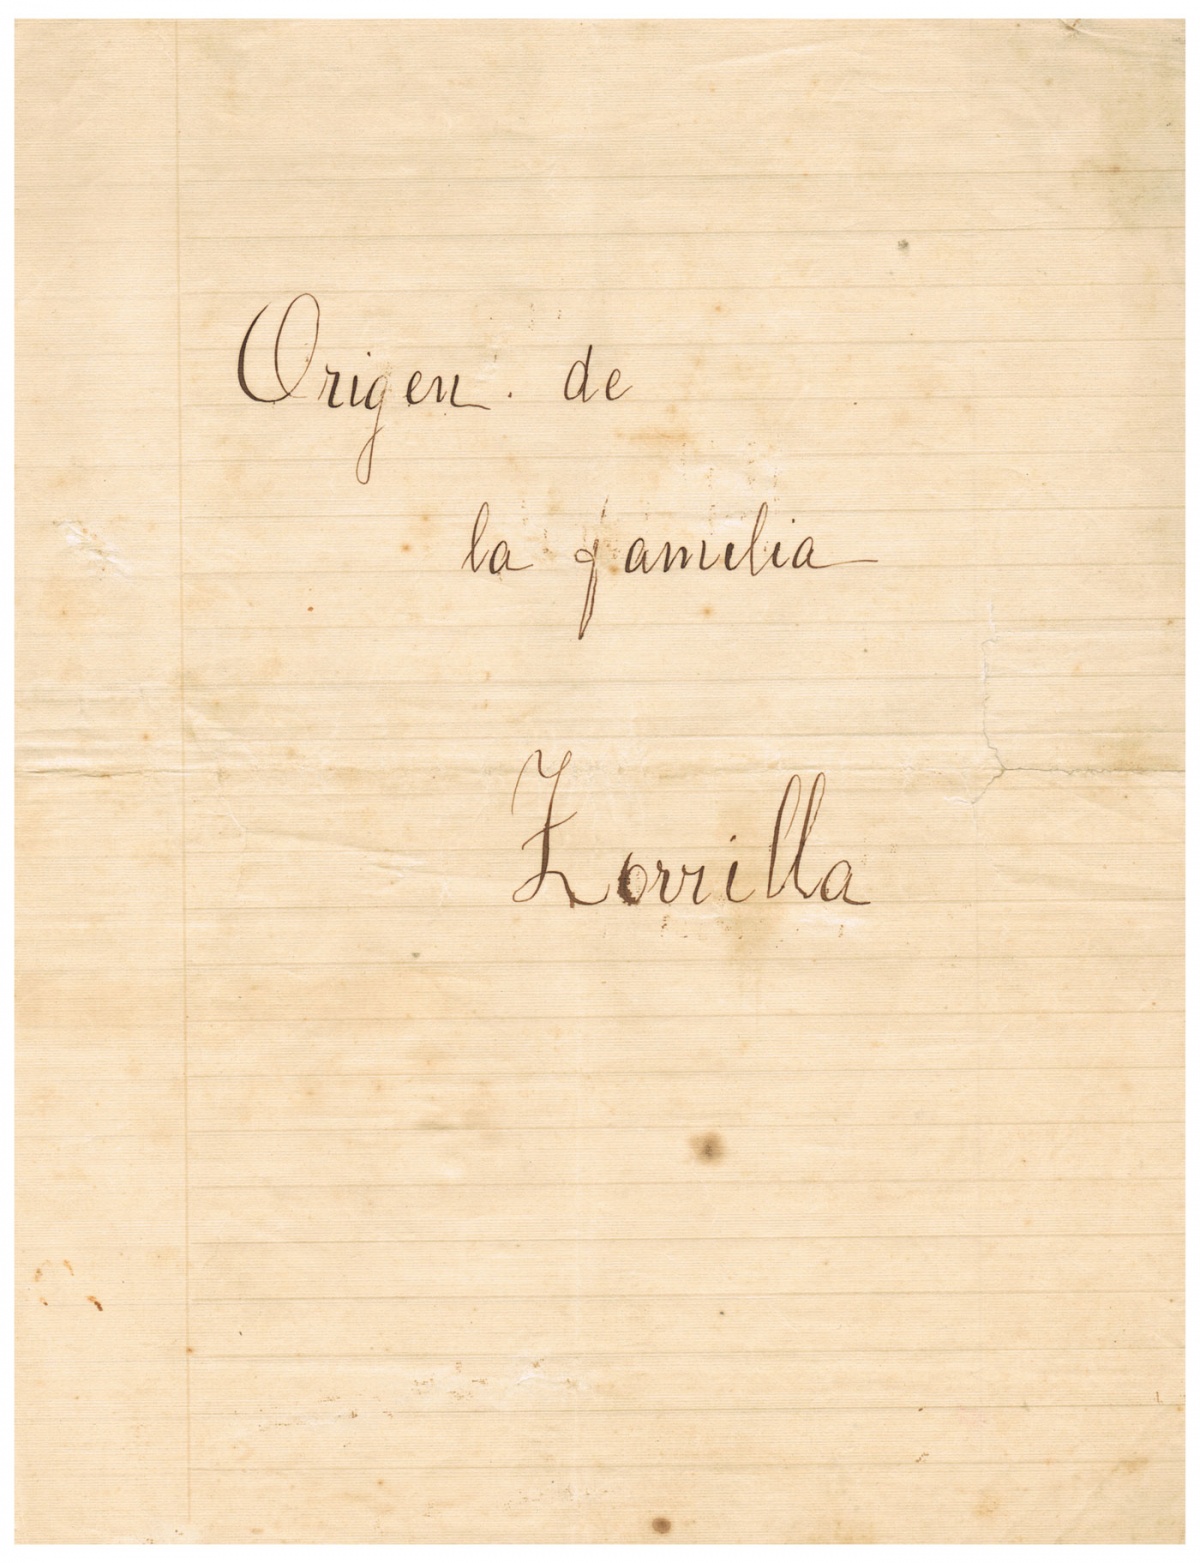 Origen. de
la familia
Zorrilla